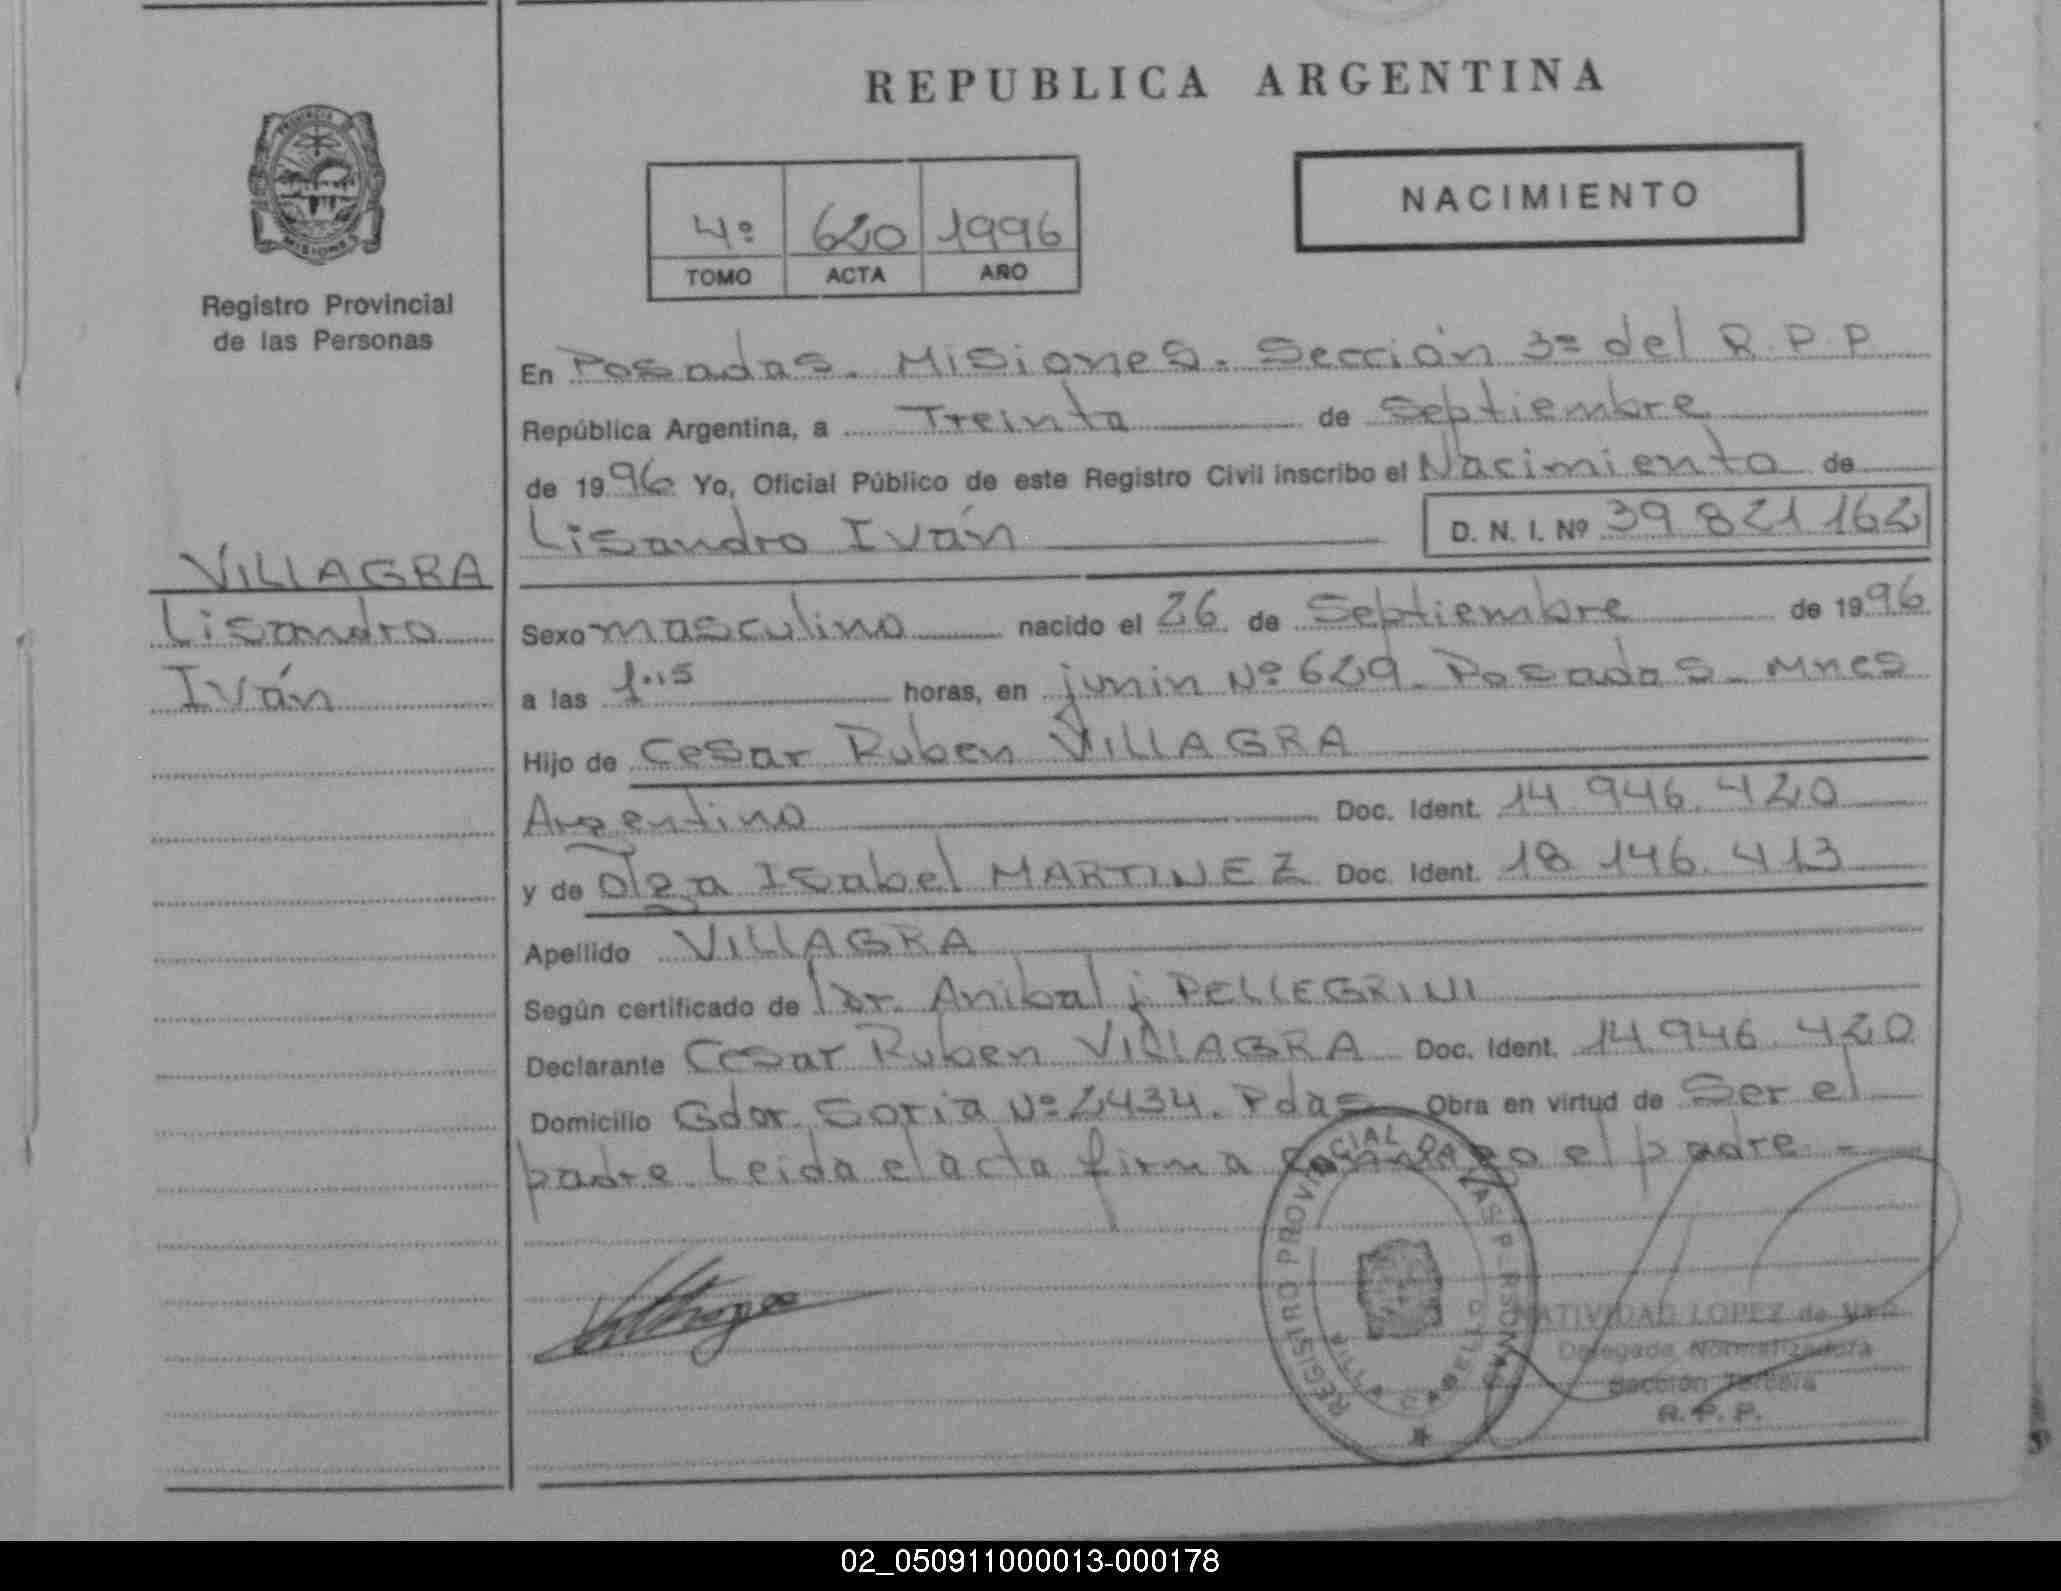 REPUBLICA ARGENTINA
PROVINCIA
MISIONES
Registro Provincial
de las Personas
NACIMIENTO
4º 620 1996
TOMO ACTA AÑO
En Posadas. Misiones. Sección 3ª del R.P.P
República Argentina, a Treinta de Septiembre
de 1996 Yo, Oficial Público de este Registro Civil inscribo el Nacimiento de
Lisandro Iván D. N. I. Nº 39 821 162
VILLAGRA
Lisandro
Iván
Sexo masculino nacido el 26 de Septiembre de 1996
a las 1.15 horas, en junin Nº 629. Posadas. Mnes
Hijo de Cesar Ruben VILLAGRA
Argentino Doc. Ident. 14.946.420
y de Olga Isabel MARTINEZ Doc. Ident. 18.146.413
Apellido VILLAGRA
Según certificado de Dr. Anibal j. PELLEGRINI
Declarante Cesar Ruben VILLAGRA Doc. Ident. 14.946.420
Domicilio Gdor. Soria Nº 2434. Pdas Obra en virtud de Ser el
padre. Leida el acta firma conmigo el padre. -
REGISTRO PROVINCIAL DE LAS PERSONAS
NATIVIDAD LOPEZ de
Delegada Normalizadora
Sección Tercera
R. P. P.
02_050911000013-000178